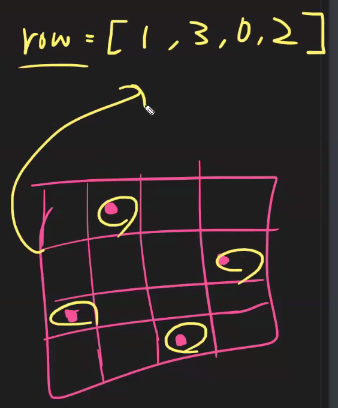 row = [ 1 , 3 , 0 , 2 ]